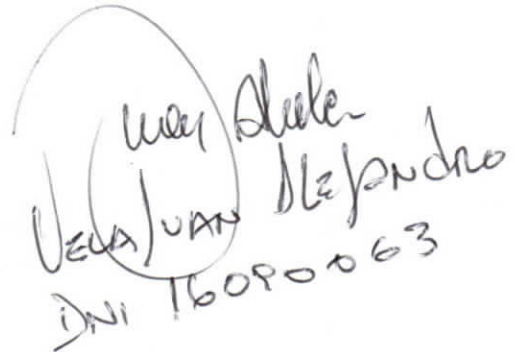 VELA JUAN ALEJANDRO
DNI 16090063